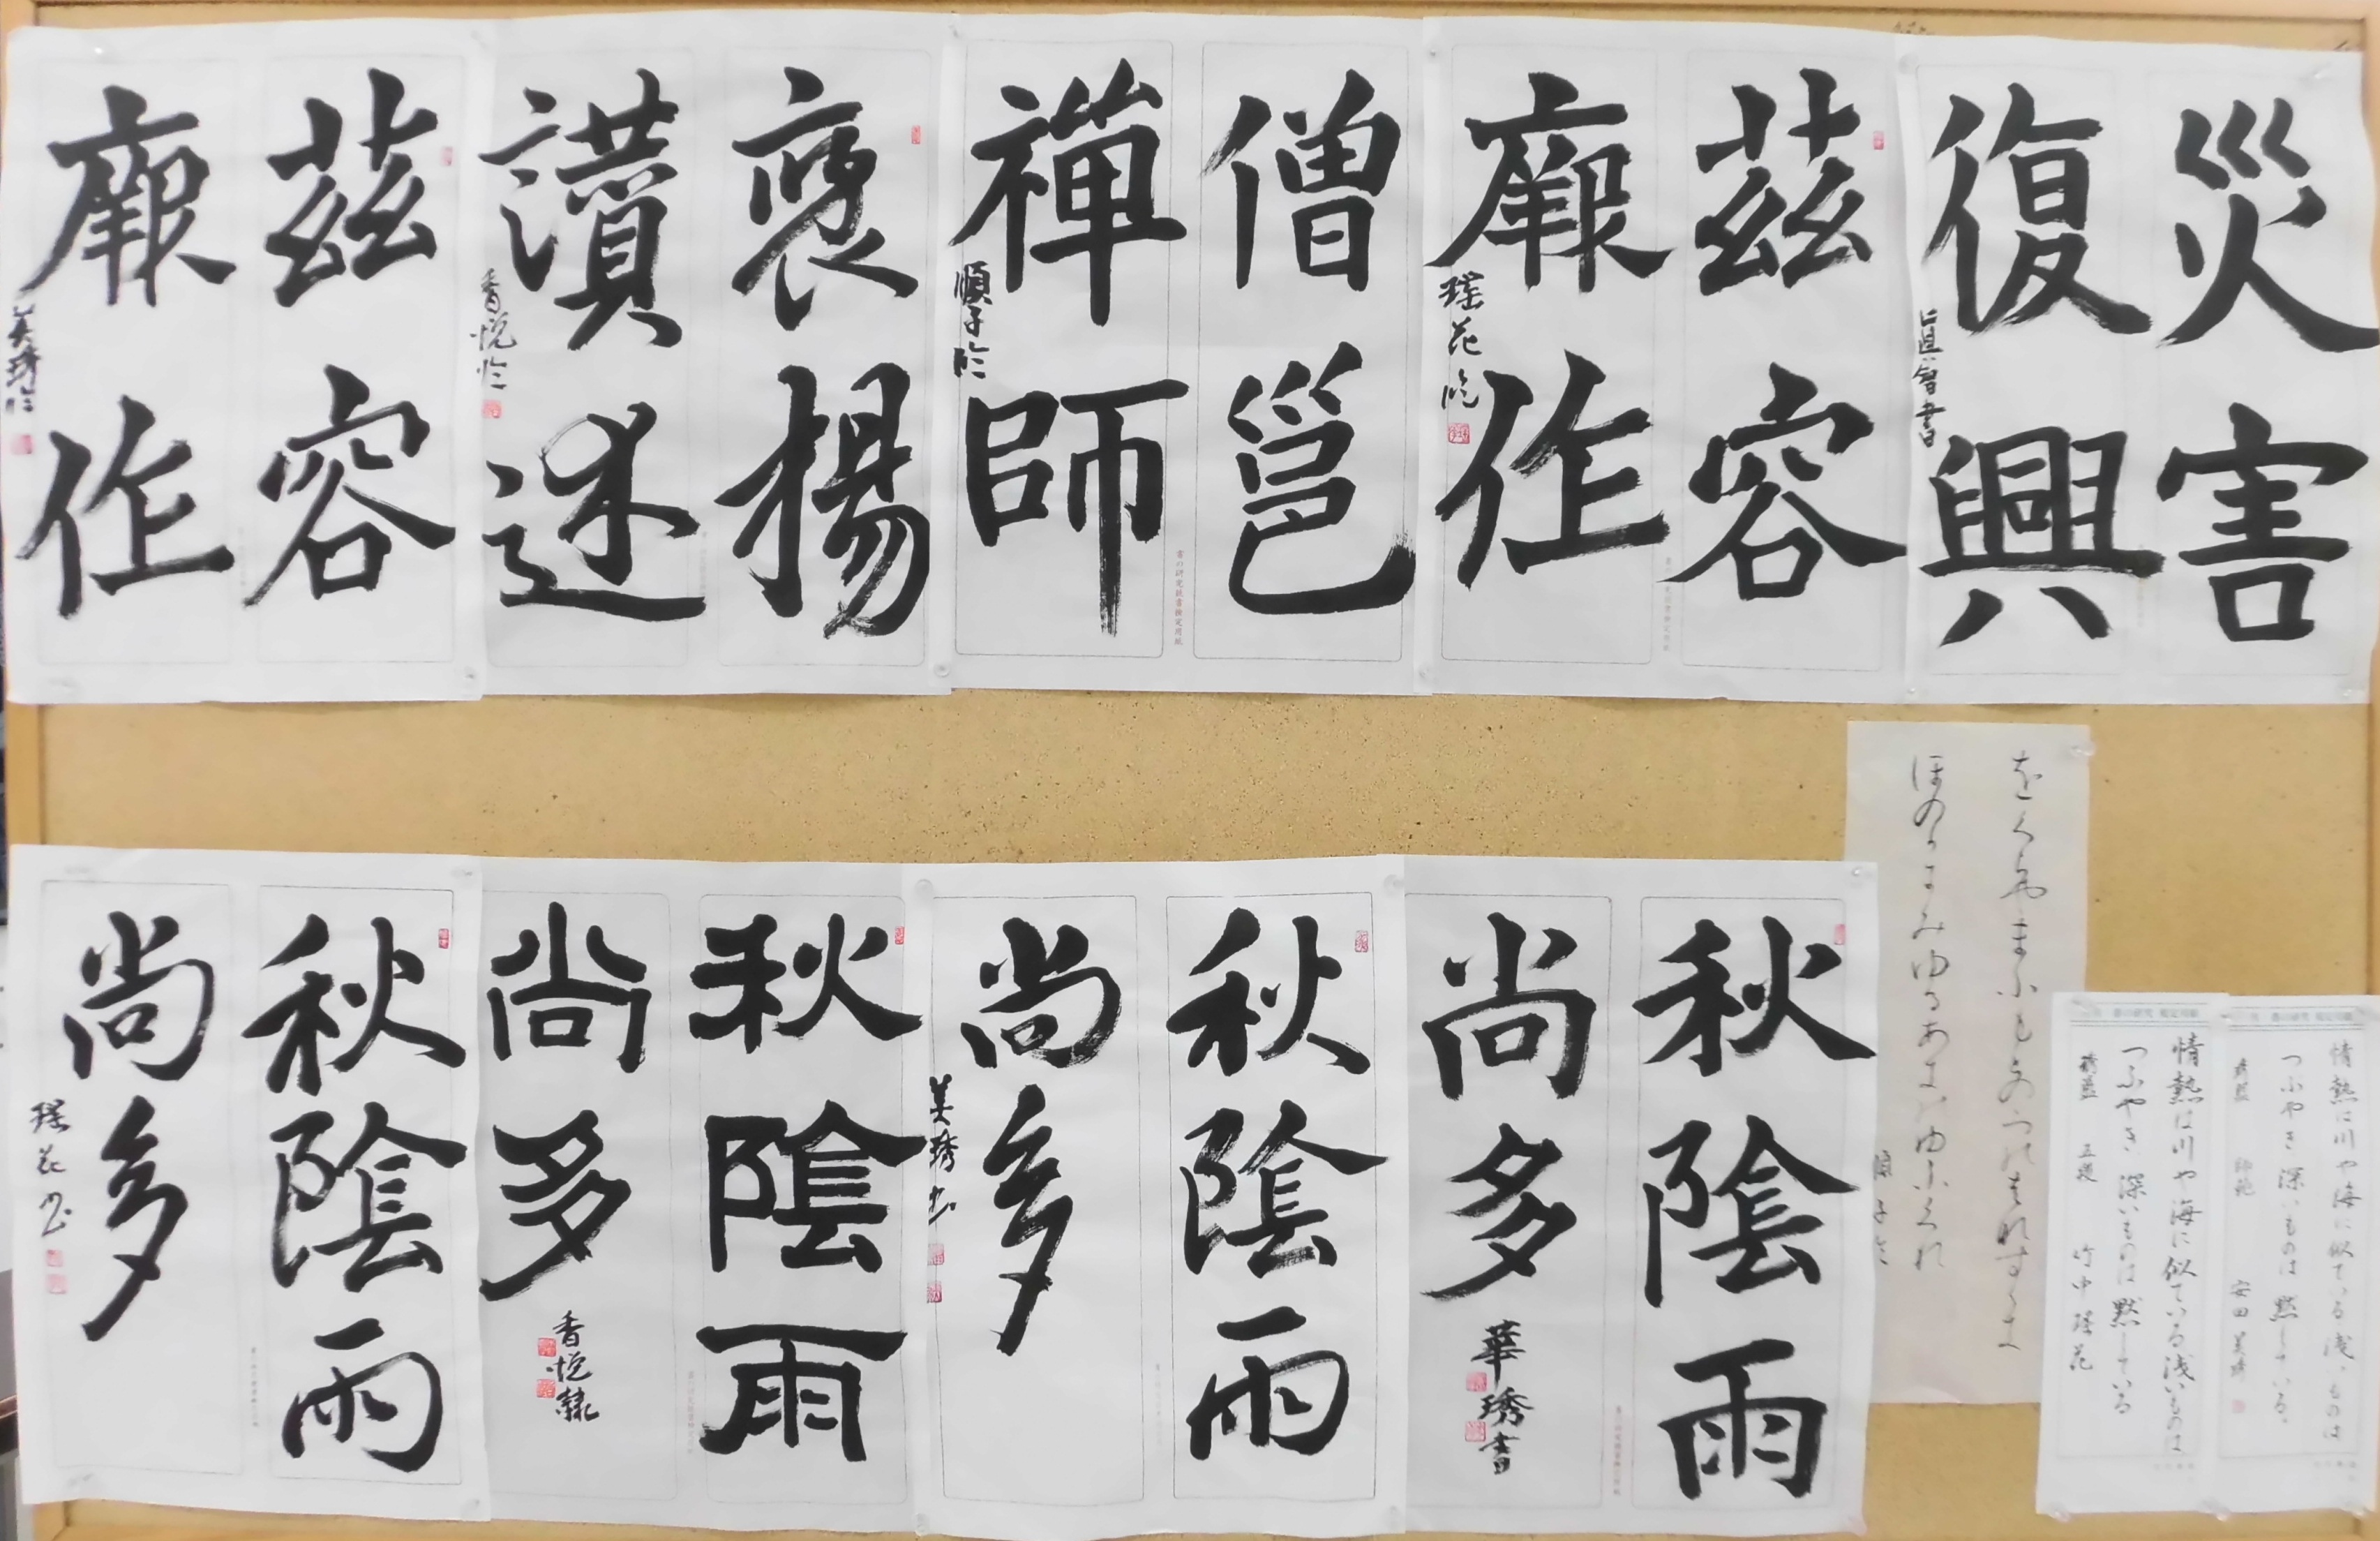 災害
復興
直智書
茲容
廏作
瑤花臨
僧邕
禪師
順子臨
褒揚
讃述
香悦臨
茲容
廏作
美琇臨
秋陰雨
尚多
華琇書
秋陰雨
尚多
美琇書
秋陰雨
尚多
香悦隸
秋陰雨
尚多
瑤花書
順子臨
情熱は川や海に似ている浅いものは
つぶやき深いものは黙している。
安田美琇
情熱は川や海に似ている浅いものは
つぶやき深いものは黙している
五段
竹中瑤花
書の研究毛筆検定用紙